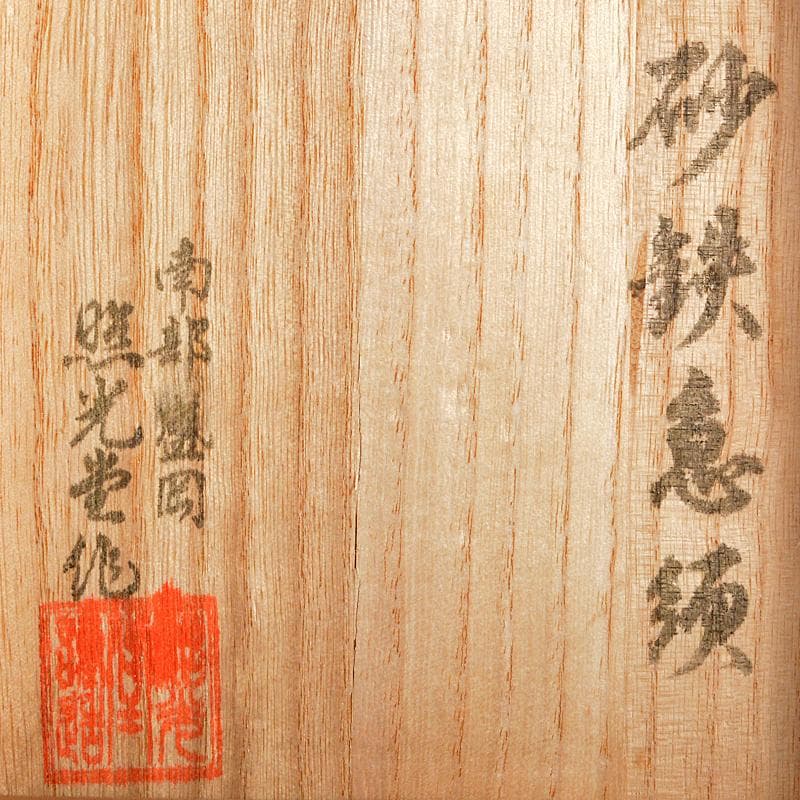 砂鉄急須
南部盛岡
照光堂作